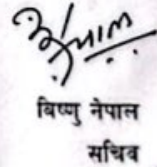 बिष्णु नेपाल
सचिव